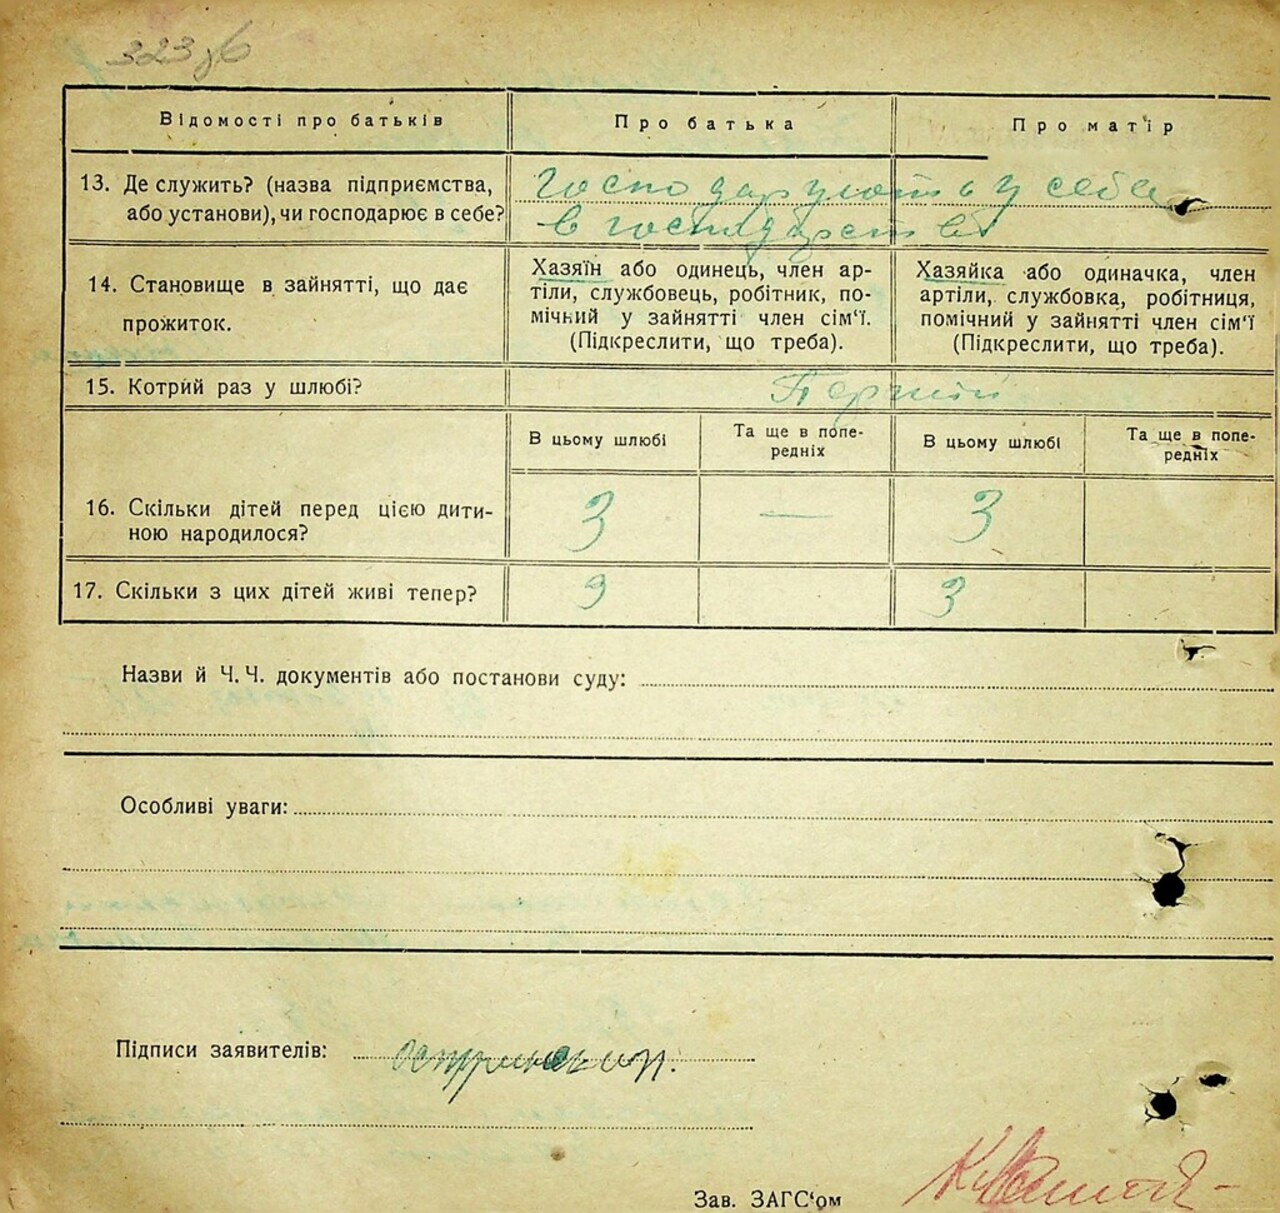 323зб
Відомості про батьків
Про батька
Про матір
13. Де служить? (назва підприємства,
або установи), чи господарює в себе?
господарують у себе
в господарстві
14. Становище в зайнятті, що дає
прожиток.
Хазяїн або одинець, член ар-
тіли, службовець, робітник, по-
мічний у зайнятті член сім‘ї.
(Підкреслити, що треба).
Хазяйка або одиначка, член
артіли, службовка, робітниця,
помічний у зайнятті член сім‘ї
(Підкреслити, що треба).
15. Котрий раз у шлюбі?
Перший
В цьому шлюбі
Та ще в попе-
редніх
В цьому шлюбі
Та ще в попе-
редніх
16. Скільки дітей перед цією дити-
ною народилося?
3
—
3
17. Скільки з цих дітей живі тепер?
3
3
Назви й Ч. Ч. документів або постанови суду:
Особливі уваги:
Підписи заявителів:
Зав. ЗАГС‘ом